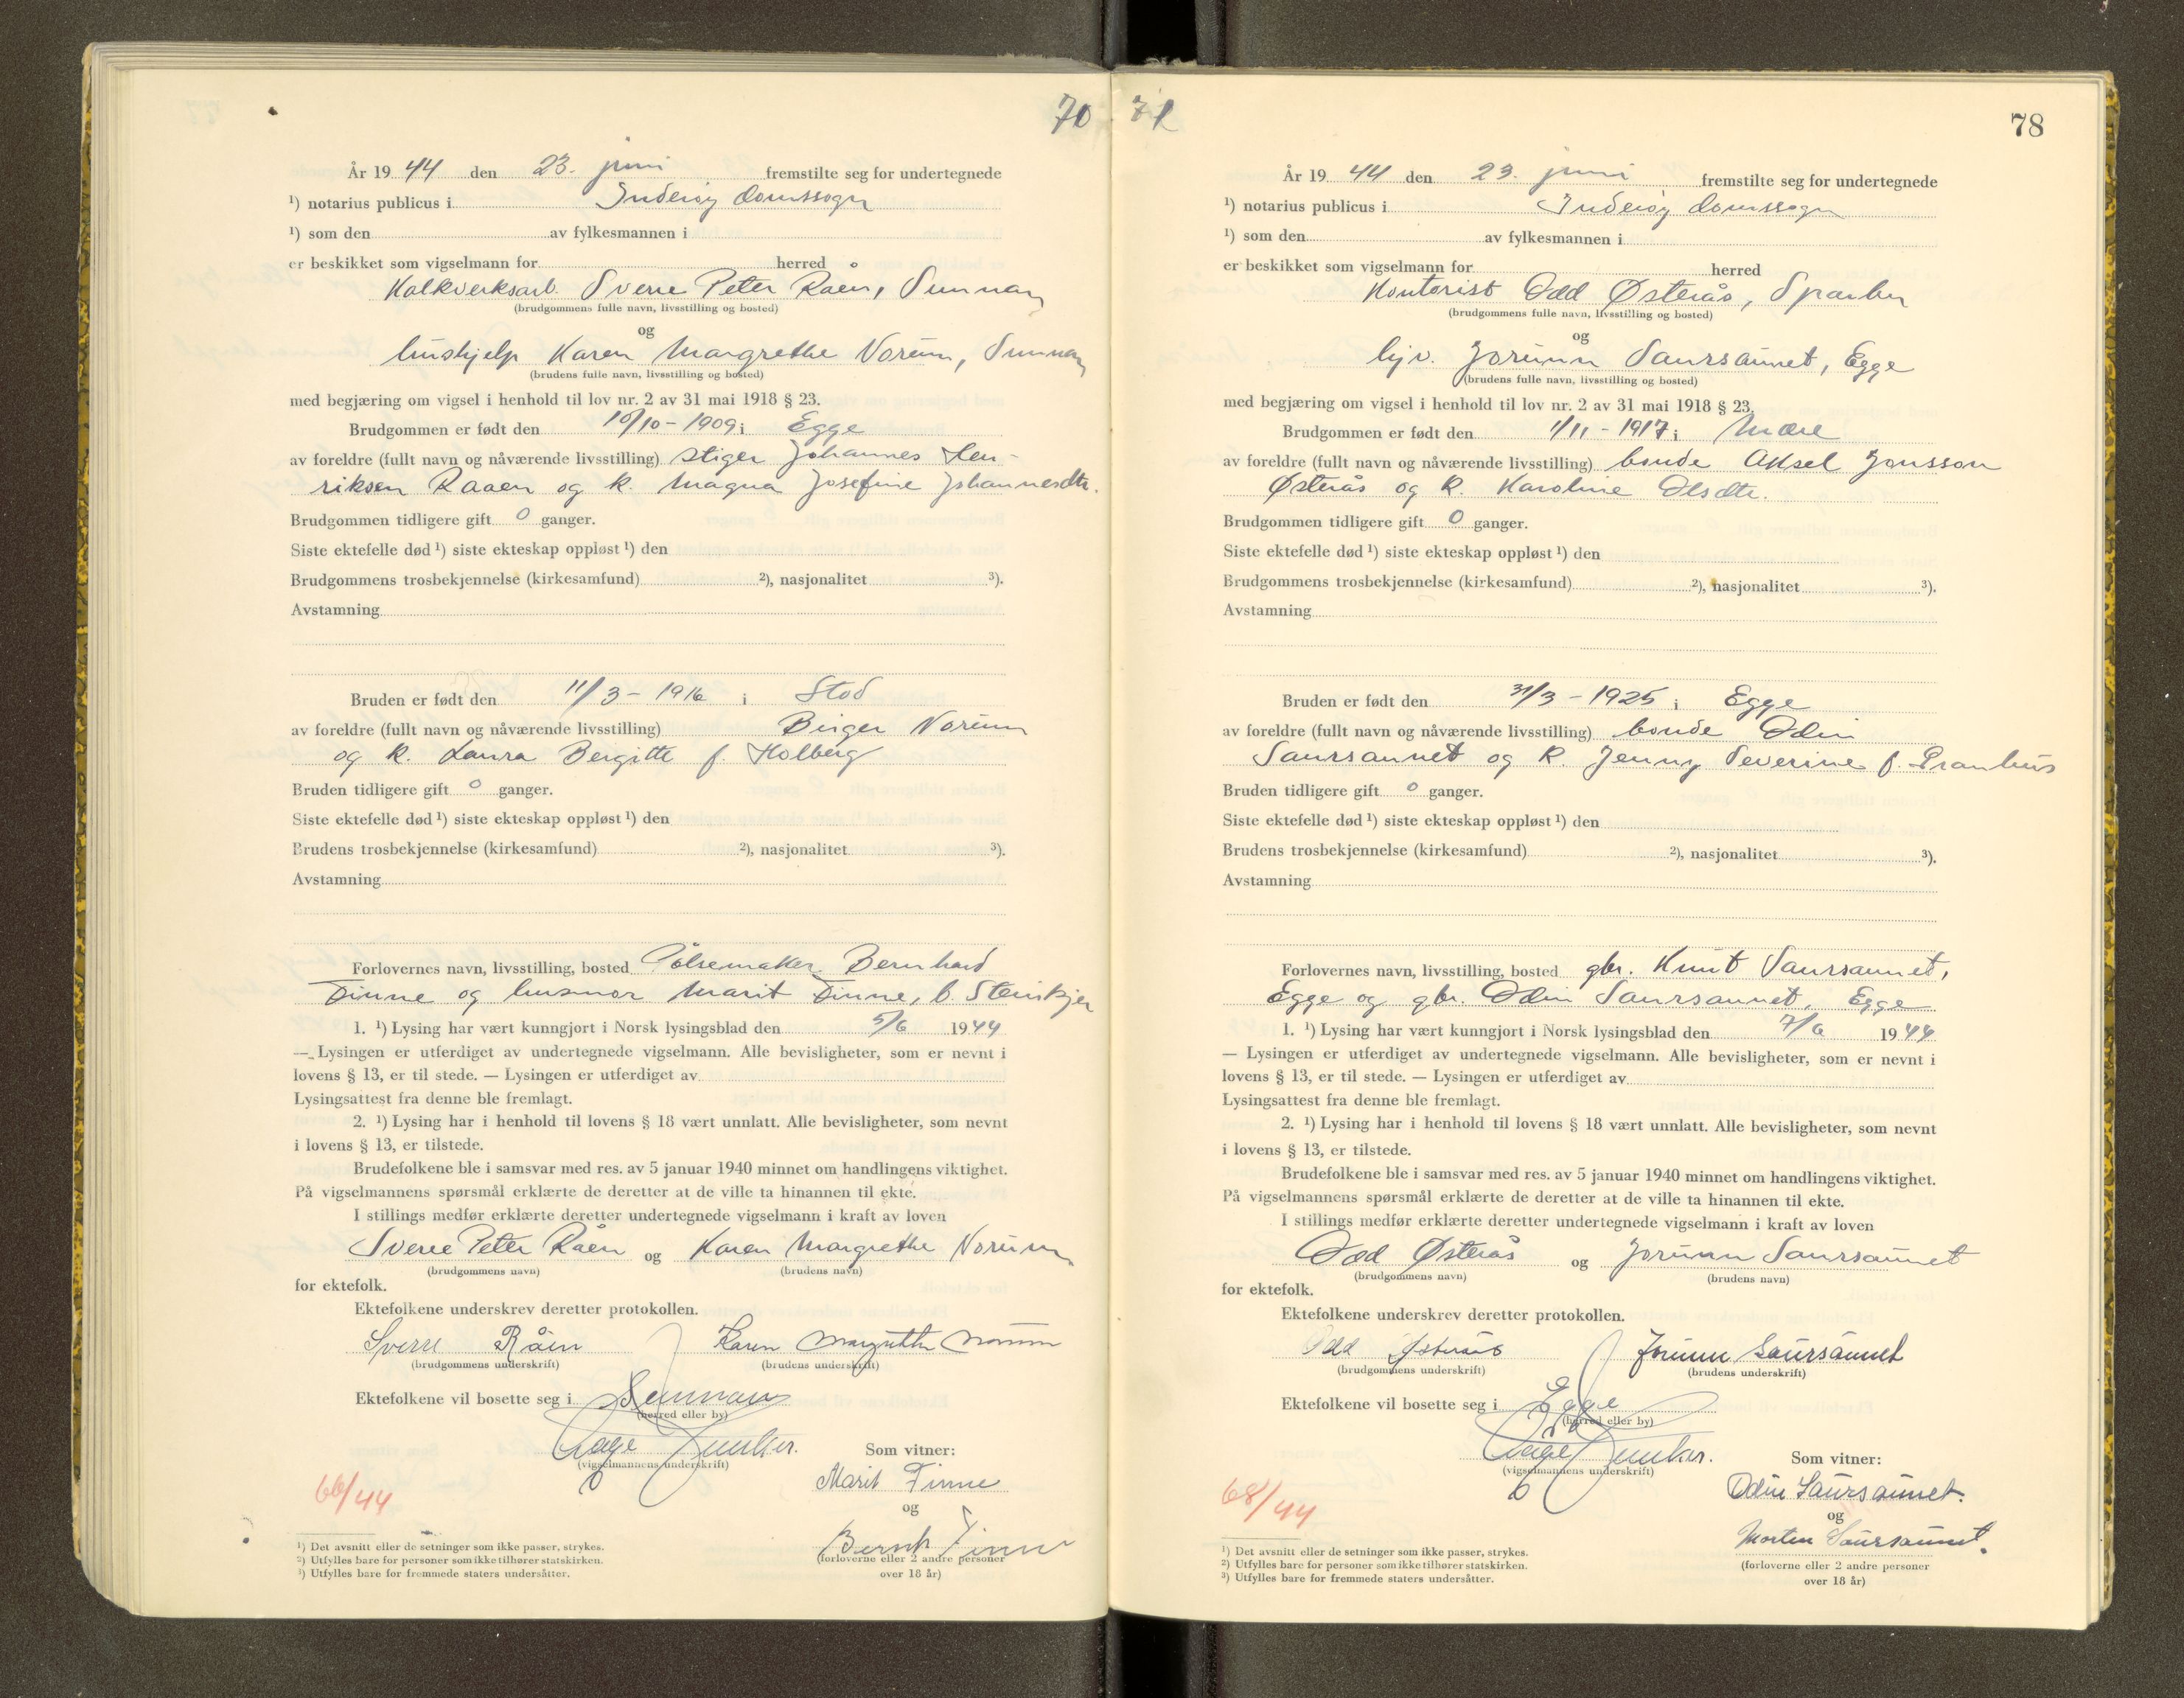 70
År 19 44 den 23. juni fremstilte seg for undertegnede
¹) notarius publicus i Inderøy domssogn
¹) som den av fylkesmannen i
er beskikket som vigselmann for herred
Kalkverksarb. Sverre Peter Råen, Sunnan
(brudgommens fulle navn, livsstilling og bosted)
og
hushjelp Karen Margrethe Norum, Sunnan
(brudens fulle navn, livsstilling og bosted)
med begjæring om vigsel i henhold til lov nr. 2 av 31 mai 1918 § 23.
Brudgommen er født den 10/10 - 1909 i Egge
av foreldre (fullt navn og nåværende livsstilling) stiger Johannes Hen-
riksen Raaen og k. Magna Josefine Johannesdtr.
Brudgommen tidligere gift 0 ganger.
Siste ektefelle død ¹) siste ekteskap oppløst ¹) den
Brudgommens trosbekjennelse (kirkesamfund) ²), nasjonalitet ³).
Avstamning
Bruden er født den 11/3 - 1916 i Stod
av foreldre (fullt navn og nåværende livsstilling) Birger Norum
og k. Laura Bergitte f. Holberg
Bruden tidligere gift 0 ganger.
Siste ektefelle død ¹) siste ekteskap oppløst ¹) den
Brudens trosbekjennelse (kirkesamfund) ²), nasjonalitet ³).
Avstamning
Forlovernes navn, livsstilling, bosted Pølsemaker Bernhard
Finne og husmor Marit Finne, b. Steinkjer
1. ¹) Lysing har vært kunngjort i Norsk lysingsblad den 5/6 1944
— Lysingen er utferdiget av undertegnede vigselmann. Alle bevisligheter, som er nevnt i
lovens § 13, er til stede. — Lysingen er utferdiget av
Lysingsattest fra denne ble fremlagt.
2. ¹) Lysing har i henhold til lovens § 18 vært unnlatt. Alle bevisligheter, som nevnt
i lovens § 13, er tilstede.
Brudefolkene ble i samsvar med res. av 5 januar 1940 minnet om handlingens viktighet.
På vigselmannens spørsmål erklærte de deretter at de ville ta hinannen til ekte.
I stillings medfør erklærte deretter undertegnede vigselmann i kraft av loven
Sverre Peter Råen og Karen Margrethe Norum
(brudgommens navn) (brudens navn)
for ektefolk.
Ektefolkene underskrev deretter protokollen.
Sverre Råen Karen Margrethe Norum
(brudgommens underskrift) (brudens underskrift)
Ektefolkene vil bosette seg i Sunnan
(herred eller by)
Aage
(vigselmannens underskrift)
Som vitner:
Marit Finne
og
Bernh Finne
(forloverne eller 2 andre personer
over 18 år)
66/44
¹) Det avsnitt eller de setninger som ikke passer, strykes.
²) Utfylles bare for personer som ikke tilhører statskirken.
³) Utfylles bare for fremmede staters undersåtter.
71
78
År 19 44 den 23. juni fremstilte seg for undertegnede
¹) notarius publicus i Inderøy domssogn
¹) som den av fylkesmannen i
er beskikket som vigselmann for herred
Kontorist Odd Østerås, Sparbu
(brudgommens fulle navn, livsstilling og bosted)
og
hjv. Jorunn Saursaunet, Egge
(brudens fulle navn, livsstilling og bosted)
med begjæring om vigsel i henhold til lov nr. 2 av 31 mai 1918 § 23.
Brudgommen er født den 1/11 - 1917 i Mære
av foreldre (fullt navn og nåværende livsstilling) bonde Aksel Jonsson
Østerås og k. Karoline Olsdtr.
Brudgommen tidligere gift 0 ganger.
Siste ektefelle død ¹) siste ekteskap oppløst ¹) den
Brudgommens trosbekjennelse (kirkesamfund) ²), nasjonalitet ³).
Avstamning
Bruden er født den 31/3 - 1925 i Egge
av foreldre (fullt navn og nåværende livsstilling) bonde Odin
Saursaunet og k. Jenny Severine f. Granhus
Bruden tidligere gift 0 ganger.
Siste ektefelle død ¹) siste ekteskap oppløst ¹) den
Brudens trosbekjennelse (kirkesamfund) ²), nasjonalitet ³).
Avstamning
Forlovernes navn, livsstilling, bosted gbr. Knut Saursaunet,
Egge og gbr. Odin Saursaunet, Egge
1. ¹) Lysing har vært kunngjort i Norsk lysingsblad den 7/6 1944
— Lysingen er utferdiget av undertegnede vigselmann. Alle bevisligheter, som er nevnt i
lovens § 13, er til stede. — Lysingen er utferdiget av
Lysingsattest fra denne ble fremlagt.
2. ¹) Lysing har i henhold til lovens § 18 vært unnlatt. Alle bevisligheter, som nevnt
i lovens § 13, er tilstede.
Brudefolkene ble i samsvar med res. av 5 januar 1940 minnet om handlingens viktighet.
På vigselmannens spørsmål erklærte de deretter at de ville ta hinannen til ekte.
I stillings medfør erklærte deretter undertegnede vigselmann i kraft av loven
Odd Østerås og Jorunn Saursaunet
(brudgommens navn) (brudens navn)
for ektefolk.
Ektefolkene underskrev deretter protokollen.
Odd Østerås Jorunn Saursaunet
(brudgommens underskrift) (brudens underskrift)
Ektefolkene vil bosette seg i Egge
(herred eller by)
Aage
(vigselmannens underskrift)
Som vitner:
Odin Saursaunet.
og
Morten Saursaunet.
(forloverne eller 2 andre personer
over 18 år)
68/44
¹) Det avsnitt eller de setninger som ikke passer, strykes.
²) Utfylles bare for personer som ikke tilhører statskirken.
³) Utfylles bare for fremmede staters undersåtter.